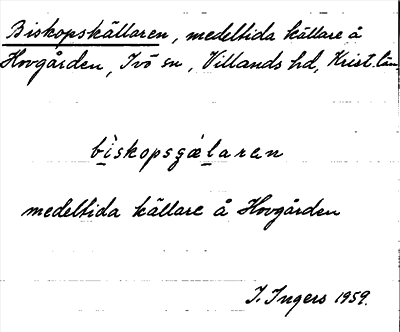 Biskopskällaren, medeltida källare å
Hovgården, Ivö sn, Villands hd, Krist. län
bìskopsgælaren
medeltida källare å Hovgården
I. Ingers 1959.